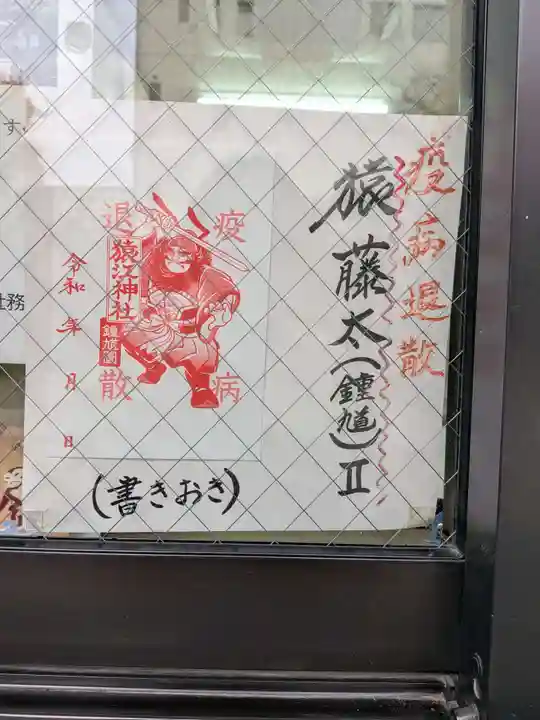 疫病退散
猿藤太(鍾馗)Ⅱ
疫病
退散
猿江神社
鍾馗図
令和 年 月 日
(書きおき)
す。
社務